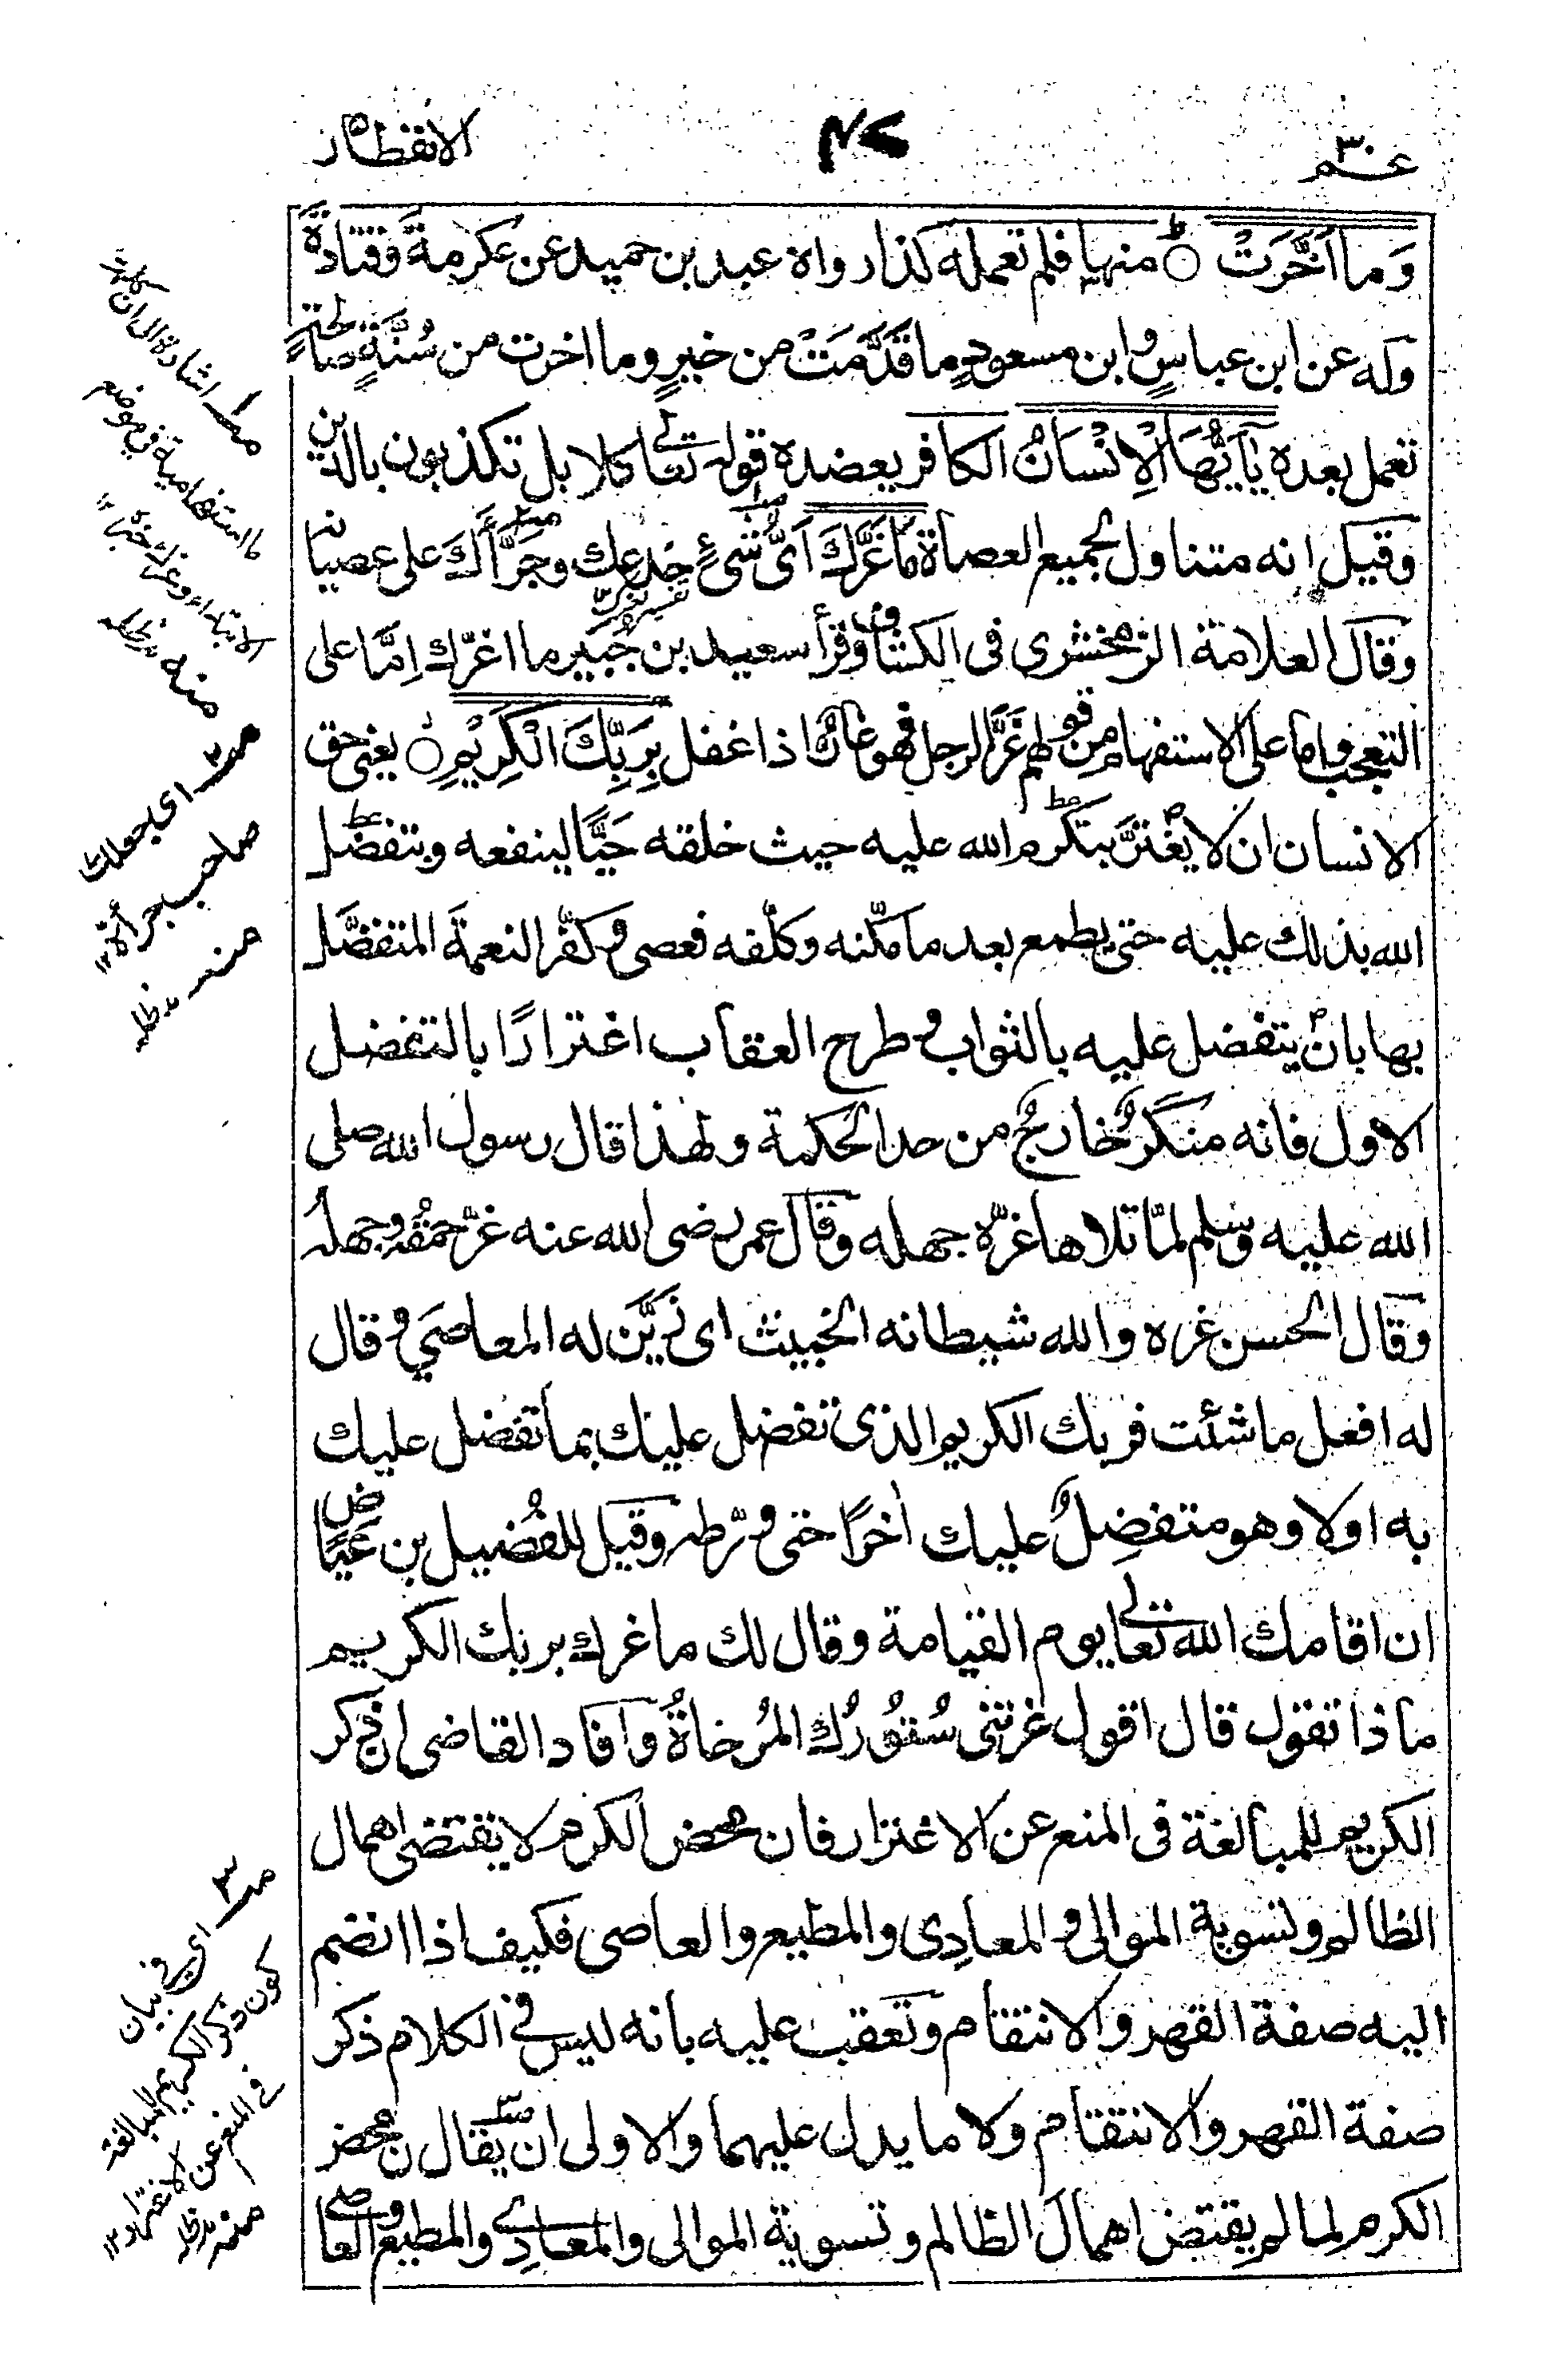 عـم ٣٠
٤٧
الانفطار
وَمَا اَخَّرَتْ ۝ ط منها فلم تعمله كذا رواه عبد بن حميد عن عكرمة وقتادة
وله عن ابن عباسٍ وابن مسعودٍ ما قَدَّمَتْ من خيرٍ وما اخرت من سُنَّةٍ صالحةٍ
تعمل بعده يٰاَيُّهَا الْاِنْسَانُ الكافر يعضده قوله تعالى كلا بل تكذبون بالدين
وقيل انه متناول لجميع العصاة مَا غَرَّكَ اَىُّ شىءٍ خدعك وجَرَّأَكَ على عصيانه
وقال العلامة الزمخشرى فى الكشاف وقرأ سعيد بن جُبير ما اغرّك اِمَّا على
التعجب واما على الاستفهام من قولهم غَرَّ الرجل فهو غارٌّ اذا غفل بِرَبِّكَ الْكَرِيْمِ ۝ يعنى حق
الانسان ان لا يغْترَّ بتكرم الله عليه حيث خلقه حَيًّا لينفعه وبتفضّل
الله بذلك عليه حتى يطمع بعد ما مكّنه وكلّفه فعصى وكفّر النعمةَ المتفضَّل
بها بان يتفضل عليه بالثواب وطرح العقاب اغترارًا بالتفضل
الاول فانه منكَرٌ خارجٌ من حد الحكمة ولهذا قال رسول الله صلى
الله عليه وسلم لمّا تلاها غرّه جهله وقال عمر رضى الله عنه غرّه حمقُه وجهلُه
وقال الحسن غره والله شيطانه الخبيث اى زَيَّن له المعاصي وقال
له افعل ما شئت فربك الكريم الذى تفضل عليك بما تفضل عليك
به اولا وهو متفضِلٌ عليك اٰخرًا حتى ورّطه وقيل للفُضيل بن عياض
ان اقامك الله تعالى يوم القيامة وقال لك ما غرك بربك الكريم
ماذا تقول قال اقول غرتنى سُتُوْرُك المُرخاةُ وافاد القاضى ان ذكر
الكريم للمبالغة فى المنع عن الاغترار فان محض الكرم لا يقتضى اهمال
الظالم وتسوية الموالى والمعادِى والمطيع والعاصى فكيف اذا انضم
اليه صفة القهر والانتقام وتعقب عليه بانه ليس فى الكلام ذكر
صفة القهر والانتقام ولا ما يدل عليهما والاولى ان يقال ان محض
الكرم لِما لم يقتض اهمالَ الظالم وتسوية الموالى والمعادِى والمطيع والعاصى
تفسير لغرك
اشارة الى ان كلمة
ما استفهامية فى موضع
الابتداء وغرك خبرها ١٢
منه مدظله
اى جعلك
صاحب جرأة ١٢
منه مدظله
اى فى بيان
كون ذكر الكريم للمبالغة
فى المنع عن الاغترار ١٢
منه مدظله